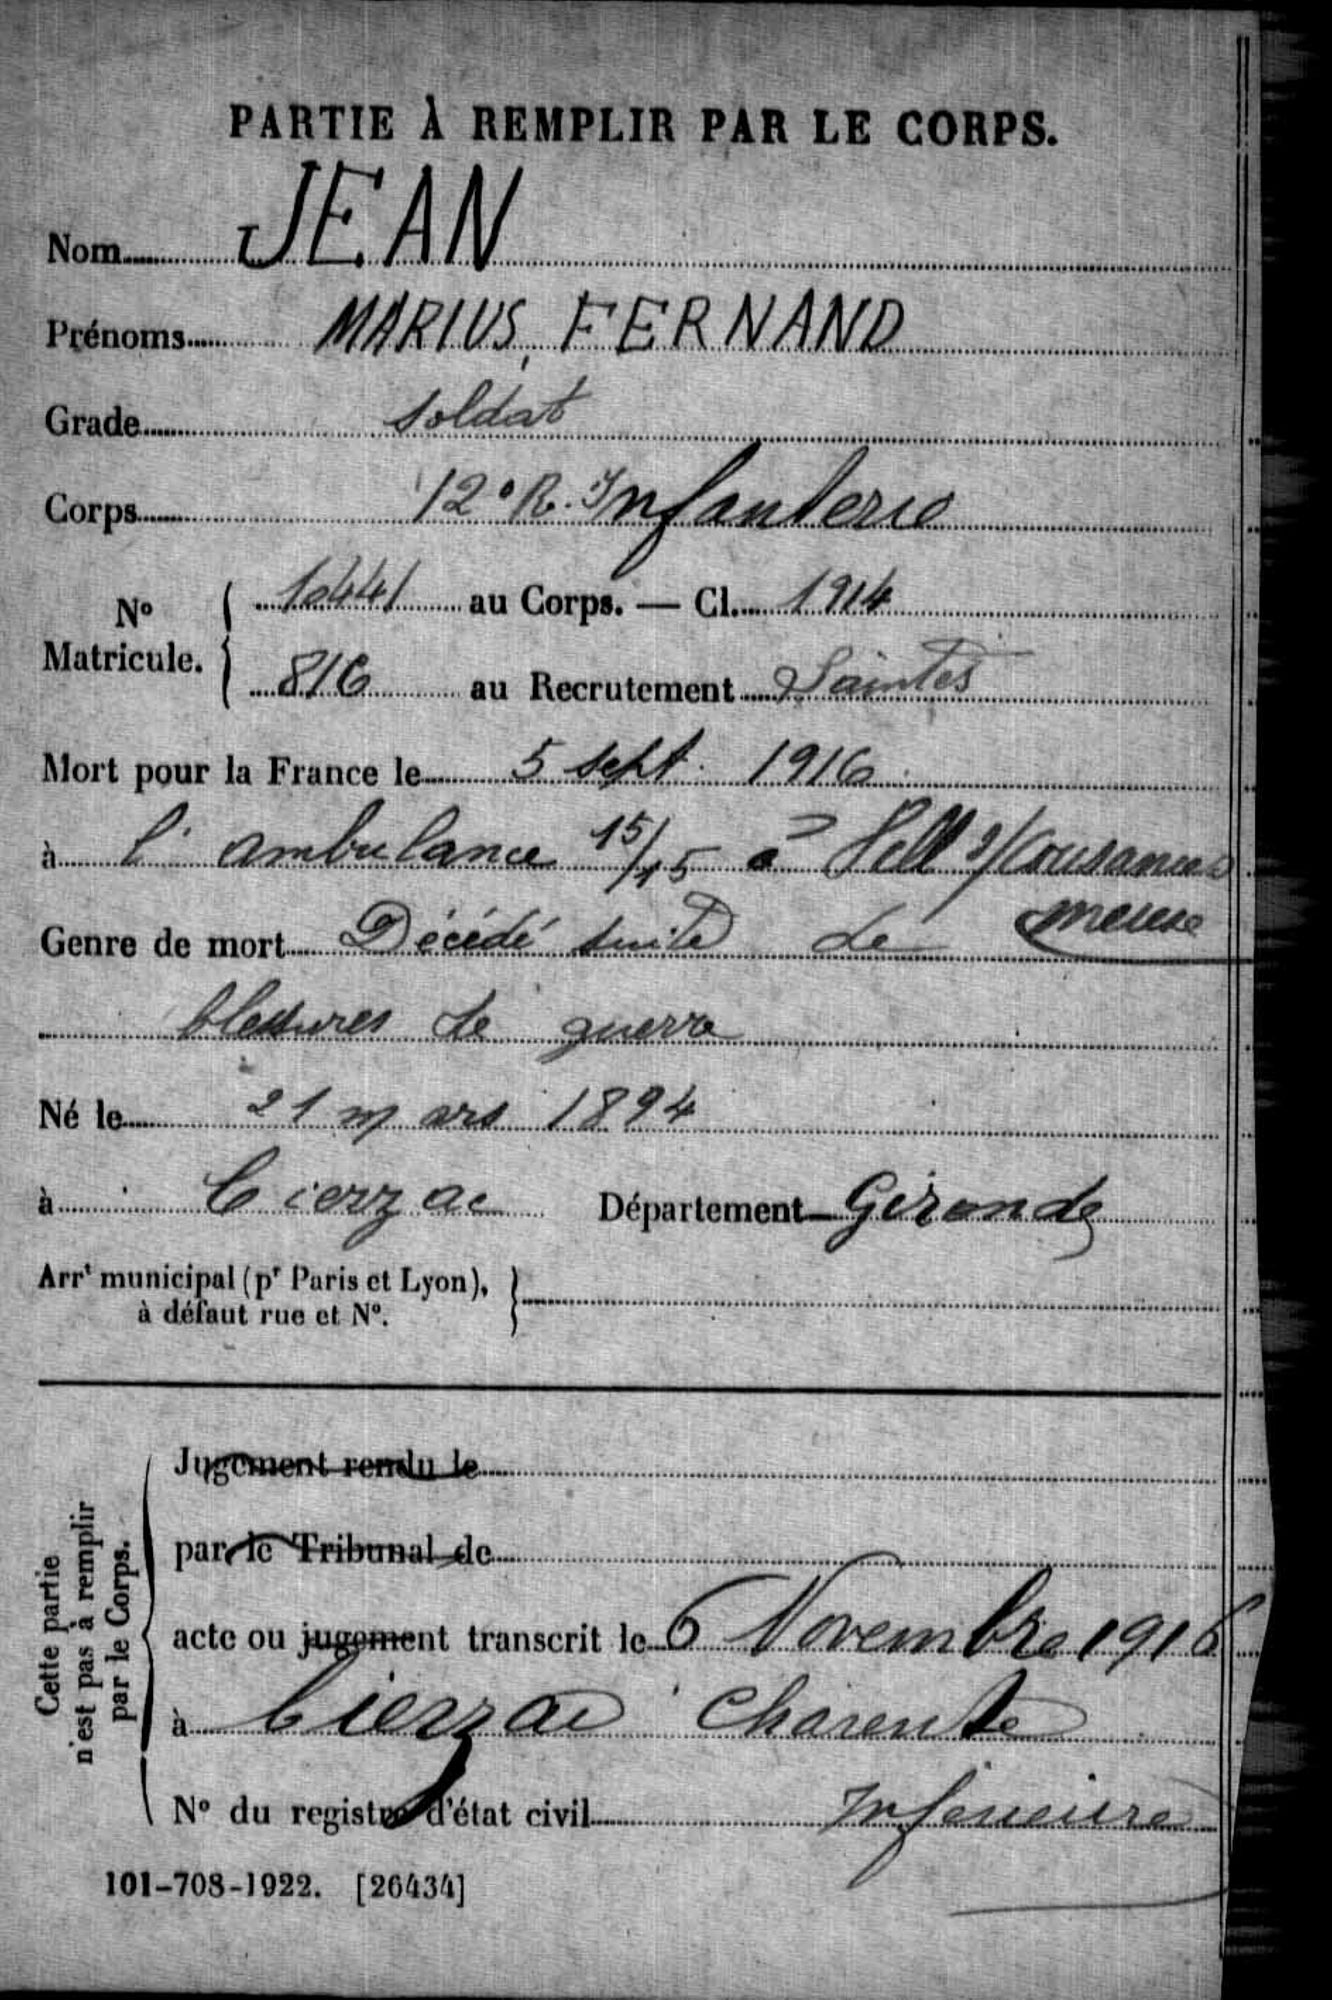 PARTIE À REMPLIR PAR LE CORPS.
Nom JEAN
Prénoms MARIUS, FERNAND
Grade soldat
Corps 12e R. Infanterie
No Matricule. { 10441 au Corps. — Cl. 1914
816 au Recrutement Saintes
Mort pour la France le 5 sept. 1916
à l'ambulance 15/15 à s/Cousances
Meuse
Genre de mort Décédé suite de
blessures de guerre
Né le 21 mars 1894
à Cierzac Département Gironde
Arrt municipal (pr Paris et Lyon),
à défaut rue et No.
Cette partie
n'est pas à remplir
par le Corps.
Jugement rendu le
par le Tribunal de
acte ou jugement transcrit le 6 Novembre 1916
à Cierzac Charente
No du registre d'état civil Inférieure
101-708-1922. [26434]